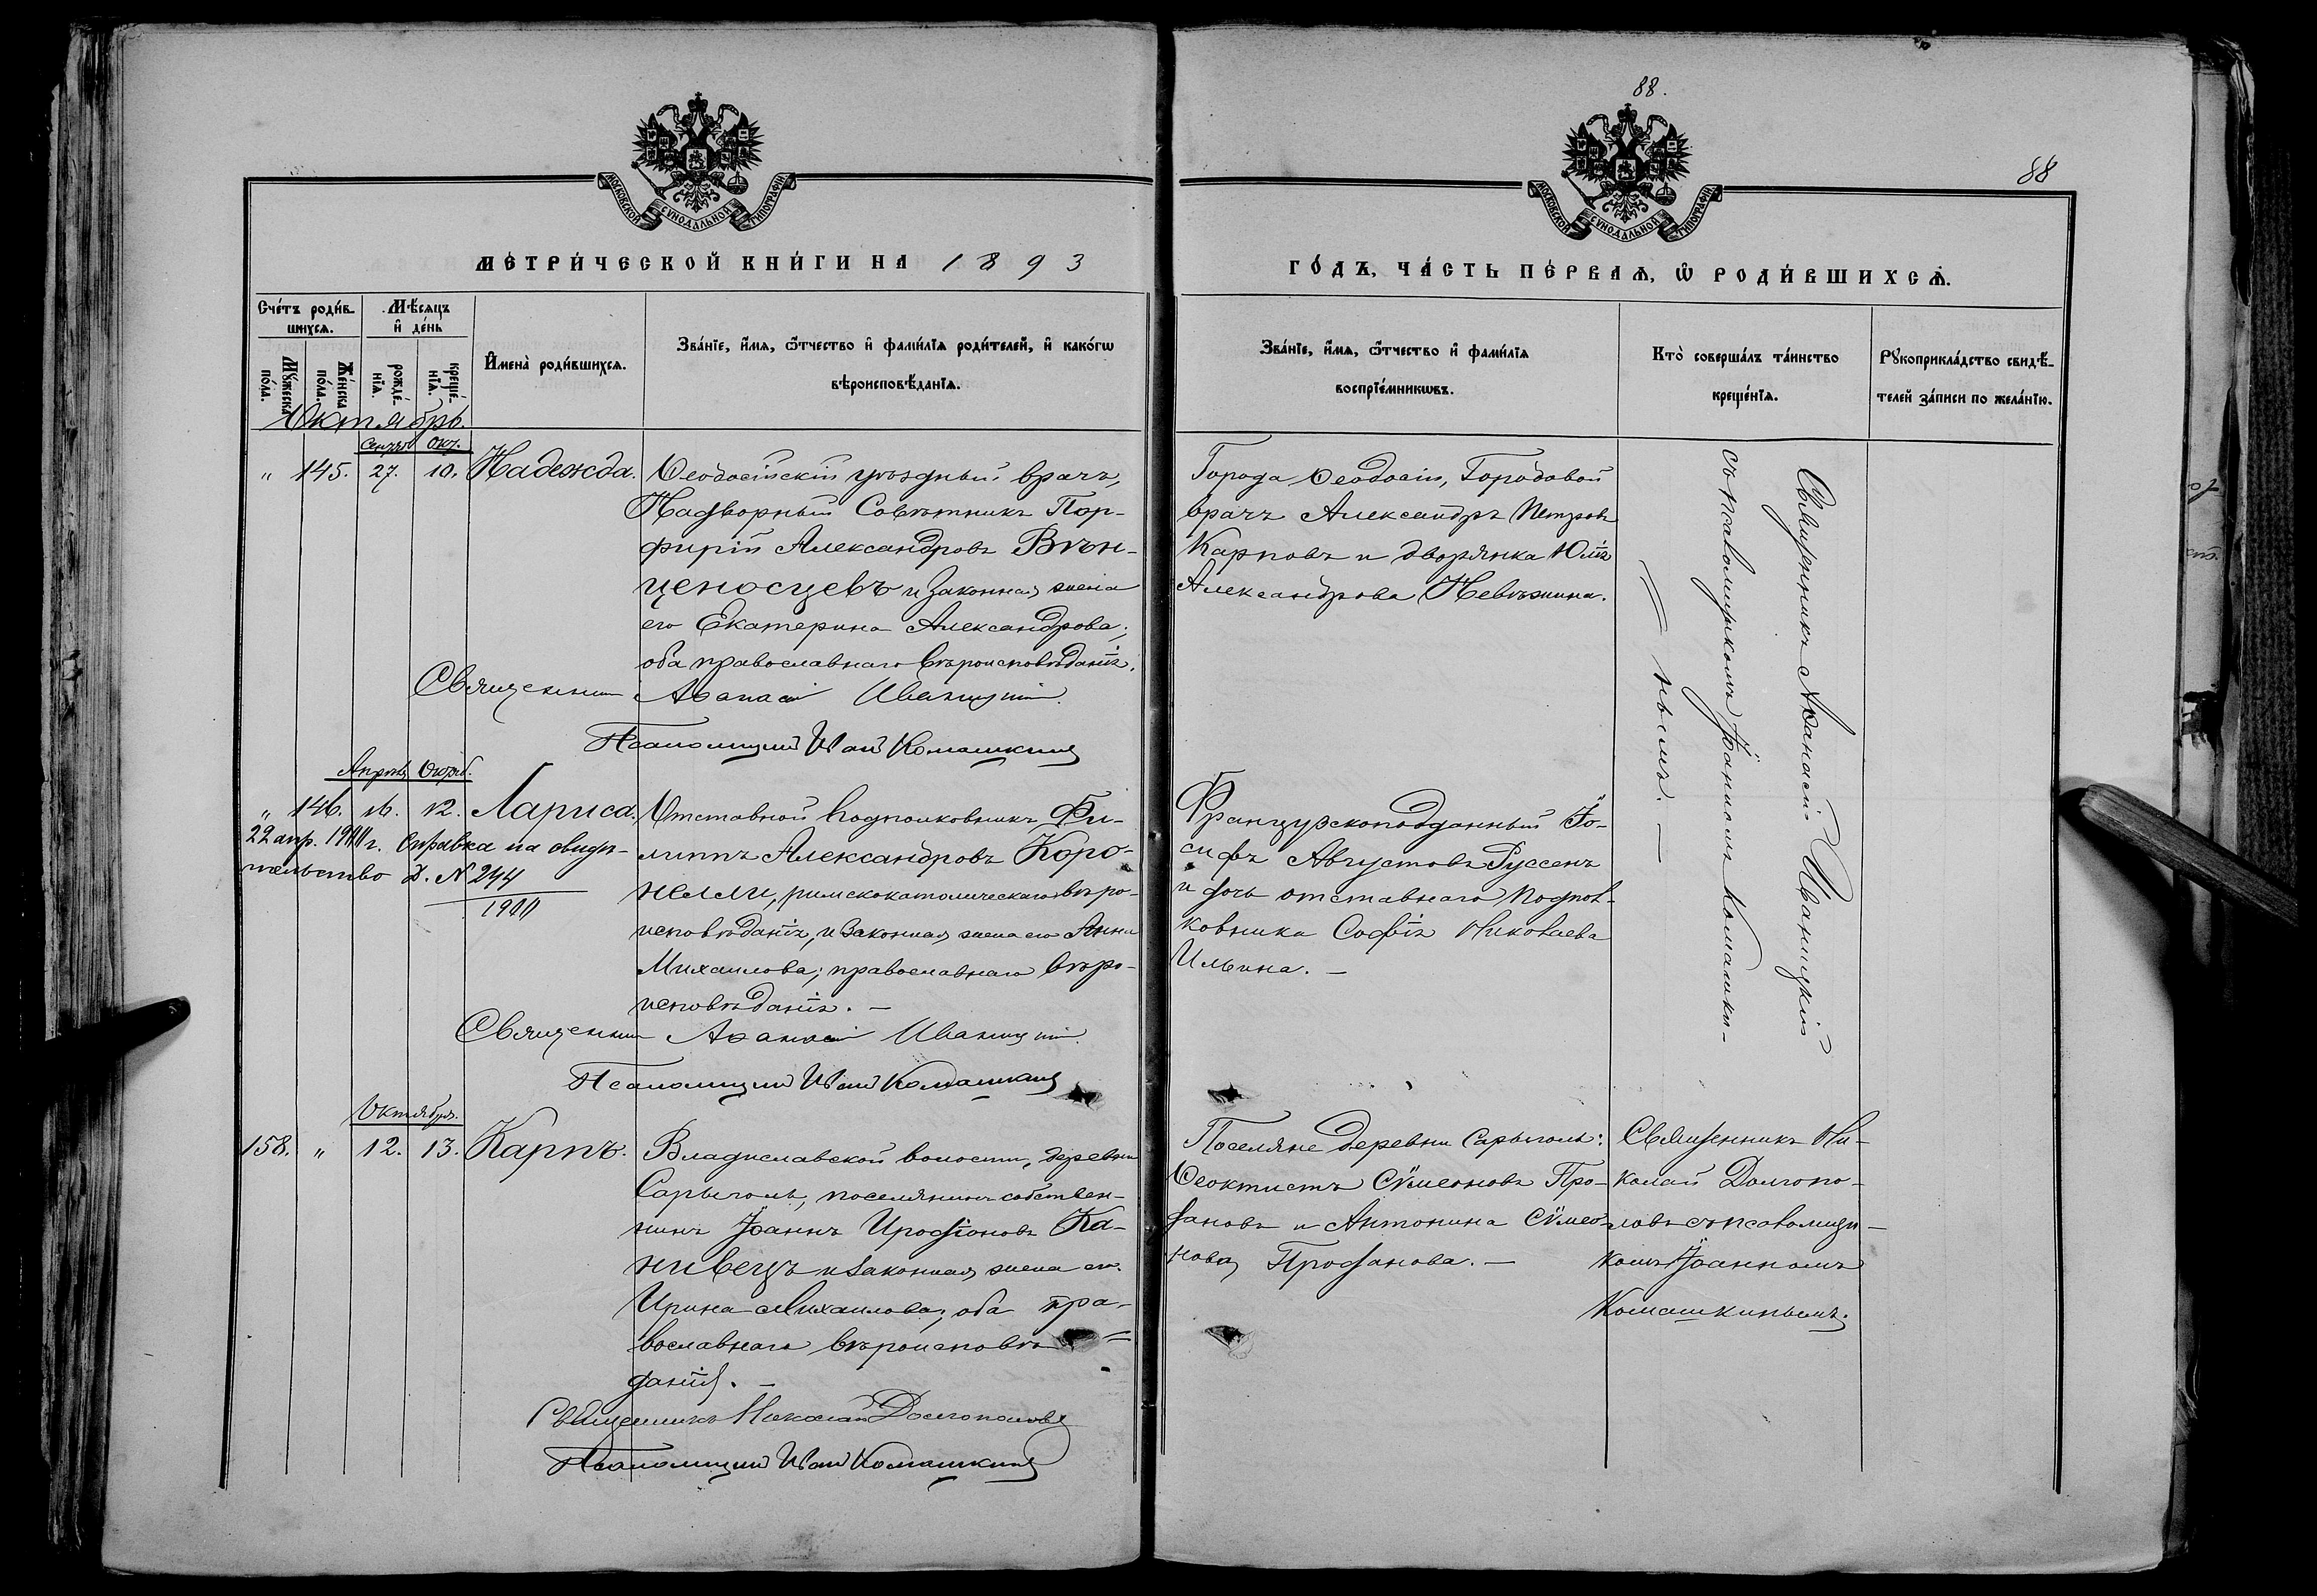 88.
88
МОСКОВСКОЙ СУНОДАЛЬНОЙ ТИПОГРАФІИ
МОСКОВСКОЙ СУНОДАЛЬНОЙ ТИПОГРАФІИ
МЕТРИ́ЧЕСКОЙ КНИ́ГИ НА 1893
ГО́ДЪ, ЧА́СТЬ ПЕ́РВАѦ, Ѽ РОДИ́ВШИХСѦ.
Сче́тъ роди́в-
шихсѧ.
Мѣ́сѧцъ
и҆ де́нь
Мꙋ́жеска
по́ла.
Же́нска
по́ла.
рожде́-
нїѧ.
креще́-
нїѧ.
И҆мена̀ роди́вшихсѧ.
Зва́нїе, и҆́мѧ, ѻ҆́тчество и҆ фами́лїѧ роди́телей, и҆ како́гѡ
вѣроисповѣ́данїѧ.
Зва́нїе, и҆́мѧ, ѻ҆́тчество и҆ фами́лїѧ
воспрїе́мникѡвъ.
Кто̀ соверша́лъ та́инство
креще́нїѧ.
Рꙋкоприкла́дство свидѣ́-
телей за́писи по жела́нїю.
Октябрь.
Сентяб. Окт.
„ 145. 27. 10. Надежда.
Ѳеодосійскій уѣздный врачъ,
Надворный Совѣтникъ Пор-
фирій Александровъ Вѣн-
ценосцевъ и законная жена
его Екатерина Александрова;
оба православнаго вѣроисповѣданія.
Священник Аѳанасій Иваницкій.
Псаломщик Иоан Комашкинъ
Города Ѳеодосіи, Городовой
врачъ Александръ Петровъ
Карповъ и дворянка Юлія
Александрова Невѣжина.
Священникъ Аѳанасій Иваницкій
съ псаломщикомъ Іоанномъ Комашки-
нымъ. —
Апрѣль Октяб.
„ 146. 16. 12. Лариса.
22 апр. 1911 г. Справка на свидѣ-
тельство Д. № 244
1911
Отставной подполковникъ Фи-
липпъ Александровъ Коро-
нелли, римскокатолическаго вѣро-
исповѣданія, и законная жена его Анна
Михаилова; православнаго вѣро-
исповѣданія. —
Священник Аѳанасій Иваницкій.
Псаломщик Иоан Комашкинъ
Французскоподданный Іо-
сифъ Августовъ Руссенъ
и дочь отставнаго подпол-
ковника Софія Николаева
Ильина. —
Октября.
158. „ 12. 13. Карпъ.
Владиславской волости, деревни
Сарыголь, поселянинъ собствен-
никъ Іоаннъ Иродіоновъ Ка-
нивецъ и законная жена его
Ирина Михаилова; оба пра-
вославнаго вѣроисповѣ-
данія. —
Священникъ Николай Долгополовъ
Псаломщик Иоан Комашкинъ
Поселяне деревни Сарыголь:
Ѳеоктистъ Сѵмеоновъ Про-
дановъ и Антонина Сѵмео-
нова Проданова. —
Священникъ Ни-
колай Долгопо-
ловъ съ псаломщи-
комъ Іоанномъ
Комашкинымъ.